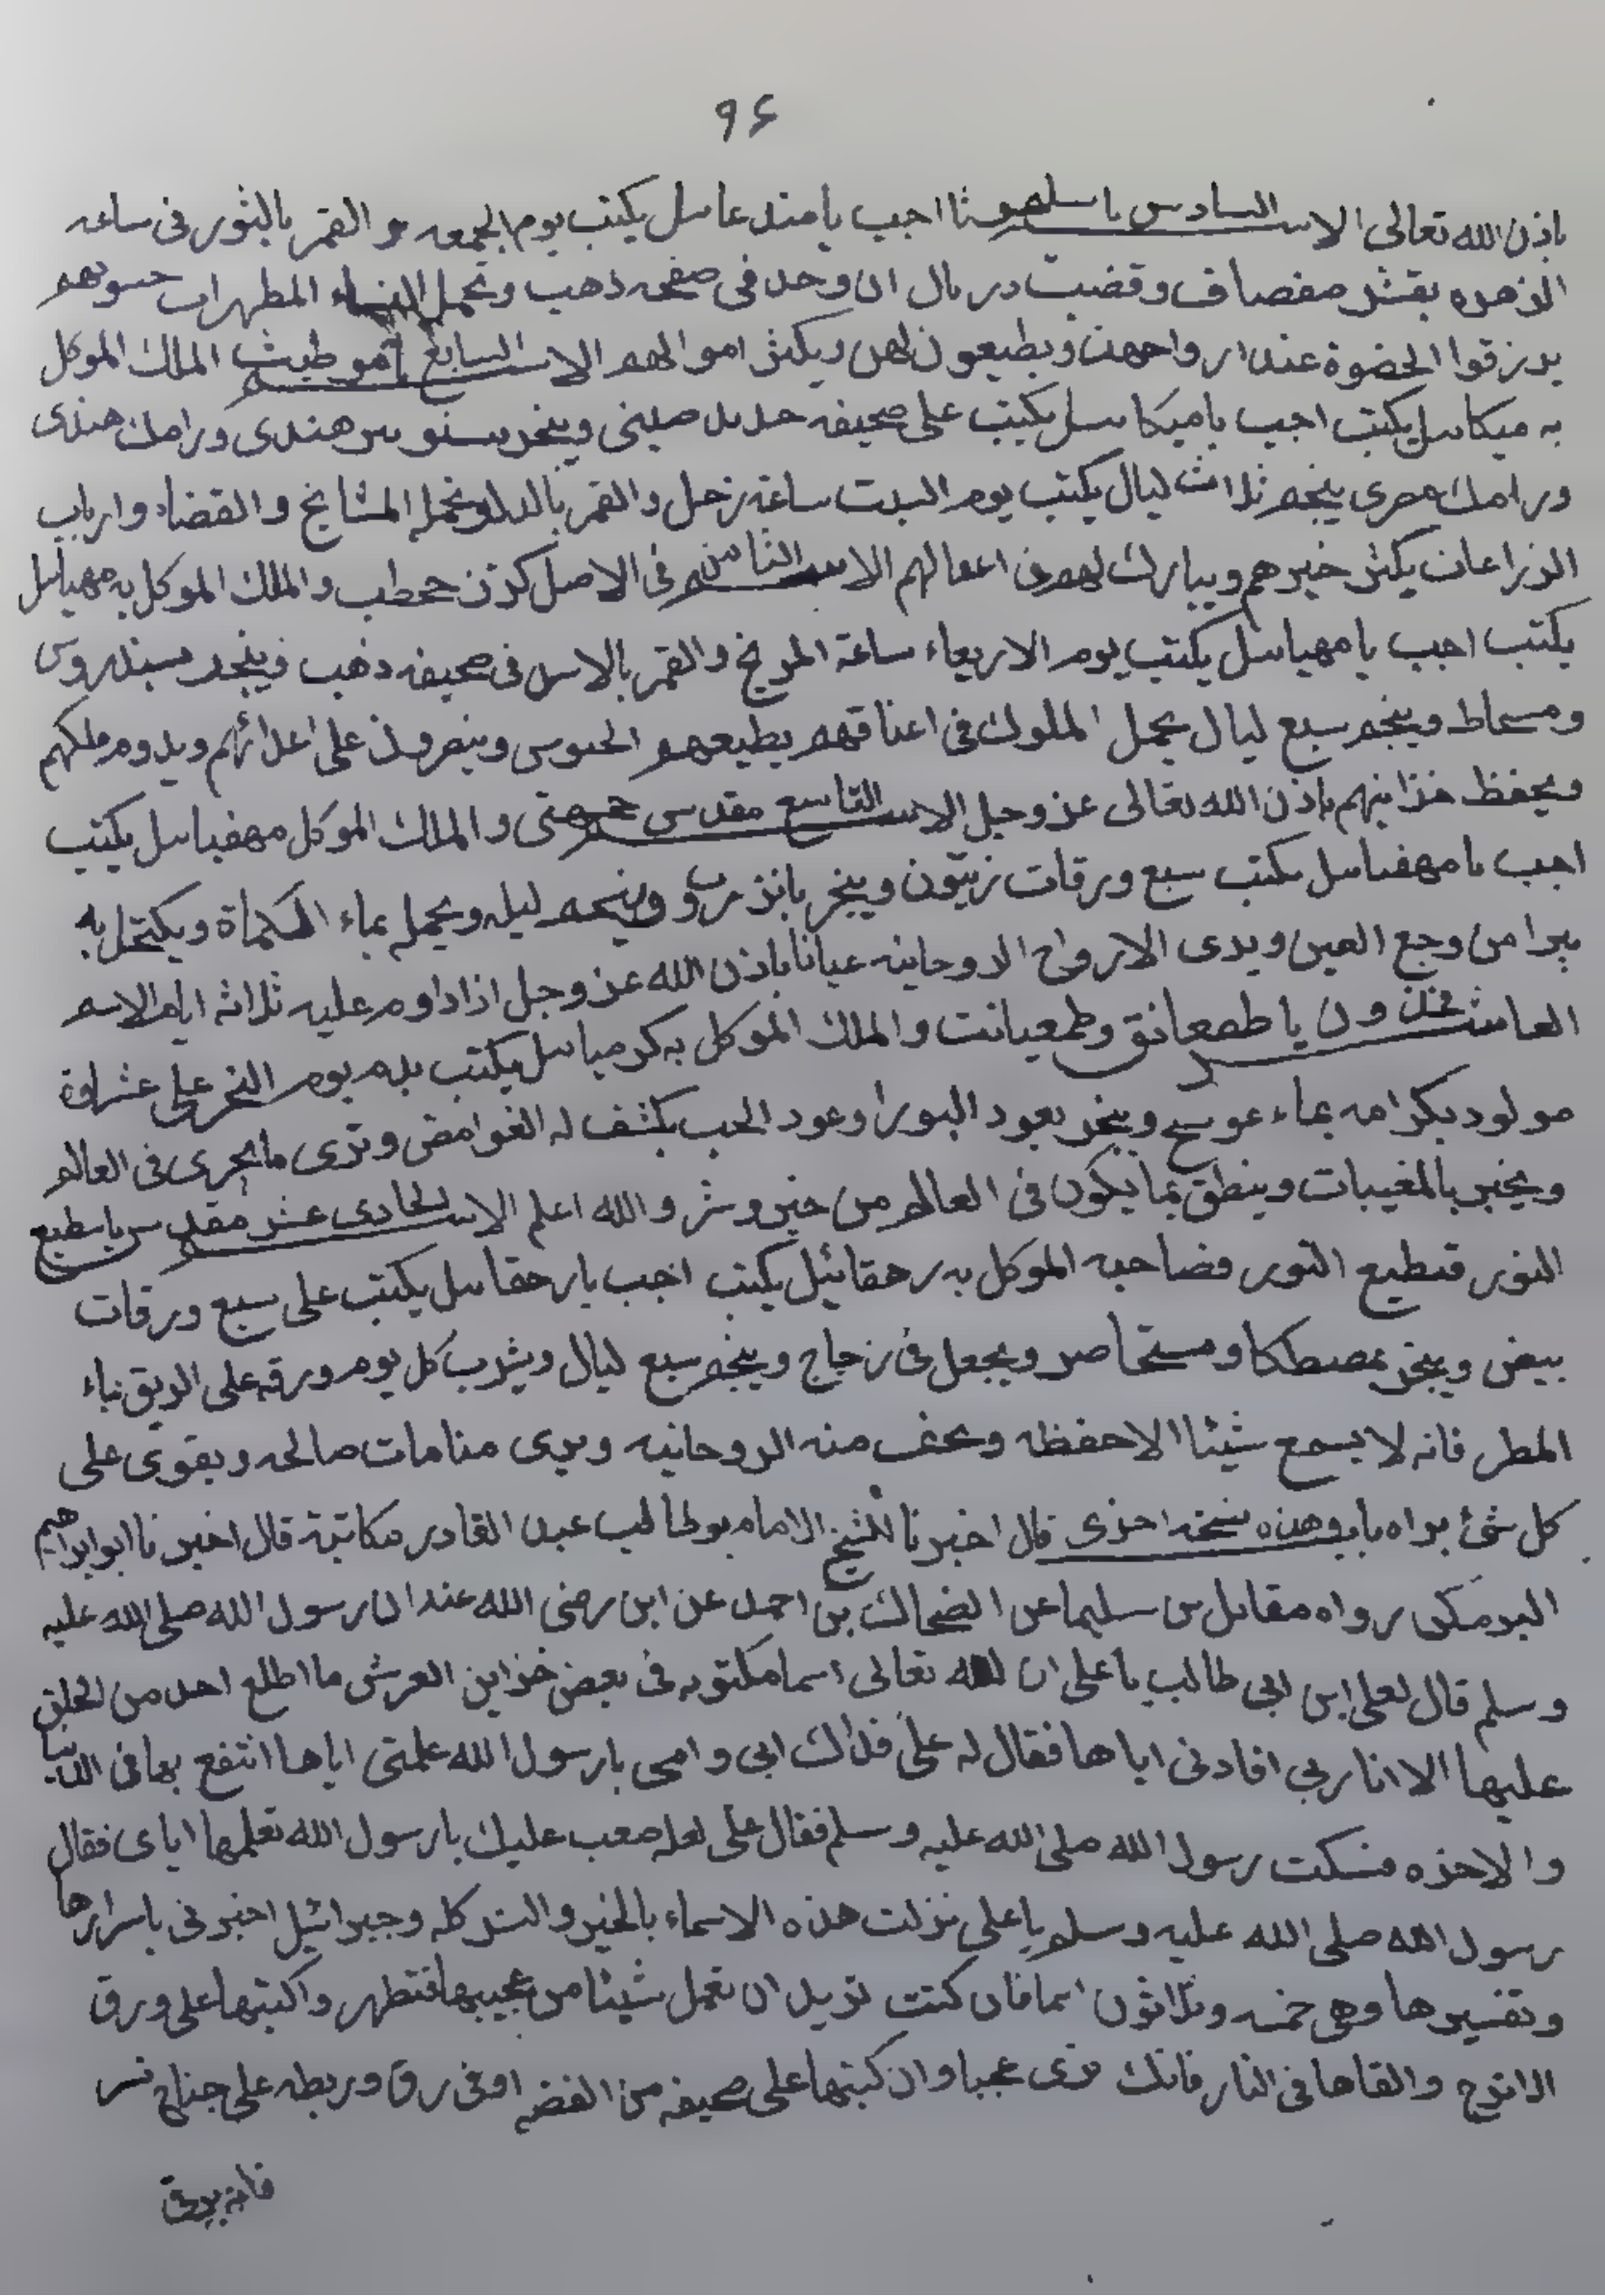 ٩۶
باذن الله تعالى الاسم السادس يا سلهموثا اجب يا مندعاىىل يكتب يوم الجمعه و القمر بالثور فى ساعه
الزهره بقشر صفصاف وقضيب در بال ان وجد فى صفحه ذهب وتحمل النساء المطهرات حسوىهم
يرزقوا الحضوة عند ارواجهن ويطيعون لهن ويكثر اموالهم الاسم السابع اموطيث الملك الموكل
به ميكاىىل يكتب اجب يا ميكاىىل يكتب على صحيفه حديد صينى ويبخر بسنوىىر هندى ورامك هندى
ورامك مصرى ينجم ثلاث ليال يكتب يوم السبت ساعة زحل والقمر بالدلو وتحمله المشايخ والقضاه وارباب
الزراعات يكثر خيرهم ويبارك لهم فى اعمالهم الاسم الثامن فى الاصل كزن حطب والملك الموكل به مهياىىل
يكتب اجب يا مهياىىل يكتب يوم الاربعاء ساعة المريخ والقمر بالاسد فى صحيفه ذهب ويبخر بسندروس
ومسماط وينجم سبع ليال يحمل الملوك فى اعناقهم يطيعهم الجيوش وينصرون على اعدائهم ويدوم ملكهم
ويحفظ خزاىنهم باذن الله تعالى عز وجل الاسم التاسع مقدسى حمهتى والملك الموكل مهفياىىل يكتب
اجب يا مهفياىىل يكتب سبع ورقات زيتون ويبخر بانزروت وينجم ليله ويحمله بماء الكماة ويكتحل به
يبرا من وجع العين ويرى الارواح الروحانيه عيانا باذن الله عز وجل اذا داوم عليه ثلاثه ايام الاسم
العاشر ياطمعانق وطمعيانت والملك الموكل به كرمياىىل يكتب بدم يوم النحر على عشراوة
مولود بكرامه بماء عوسج ويبخر بعود البورا وعود الحب يكشف له الغوامض وترى ما يجرى فى العالم
ويخبر بالمغيبات وينطق بما يكون فى العالم من خير وشر والله اعلم الاسم الحادى عشر مقدس يا سطيع
النور قسطيع النور فصاحبه الموكل به رحقائيل يكتب اجب يا رحقاىىل يكتب على سبع ورقات
بيض ويبخر بمصطكا ومستحاصر ويجعل فى زجاج وينجم سبع ليال ويشرب كل يوم ورقه على الريق بماء
المطر فانه لا يسمع شيئا الا حفظه وىحف منه الروحانيه ويرى منامات صالحه ويقوى على
كل شئ يراه باب وهذه نسخه اخرى قال اخبرنا الشيخ الامام بوطالب عبد القادر مكاتبة قال اخبرنا ابو ابراهيم
البرمكى رواه مقاتل بن سليما عن الضحاك بن احمد عن ابن رضى الله عنه ان رسول الله صلى الله عليه
وسلم قال لعلى ابن ابى طالب يا على ان لله تعالى اسما مكتوبه فى بعض خزاين العرش ما اطلع احد من الخلق
عليها الا انا ربى افادنى اياها فقال له على فداك ابى وامى يا رسول الله علمنى اياها انتفع بها فى الدنيا
والاخره فسكت رسول الله صلى الله عليه وسلم فقال على لعله صعب عليك يا رسول الله تعلمها اياى فقال
رسول الله صلى الله عليه وسلم يا على نزلت هذه الاسماء بالخير والشر كله وجبرائيل اخبرنى باسرارها
وتفسيرها وهى خمسه وثلاثون اسما فان كنت تريد ان تعمل شيئا من عجيبها فتطهر واكتبها على ورق
الاترج والقاها فى النار فانك ترى عجبا وان كتبتها على صحيفه من الفضه او فى رق وربطه على جناح نسر
فانه يرق